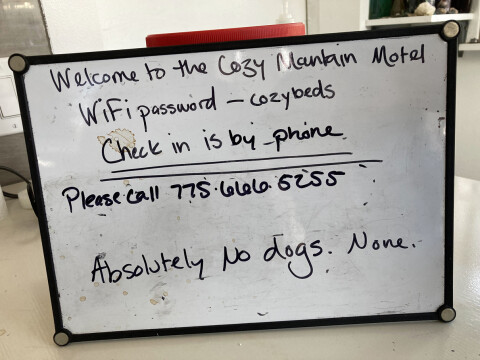 Welcome to the Cozy Mantain Motel
WiFi password - cozybeds
Check in is by phone
Please call 775.666.5255
Absolutely No dogs. None.